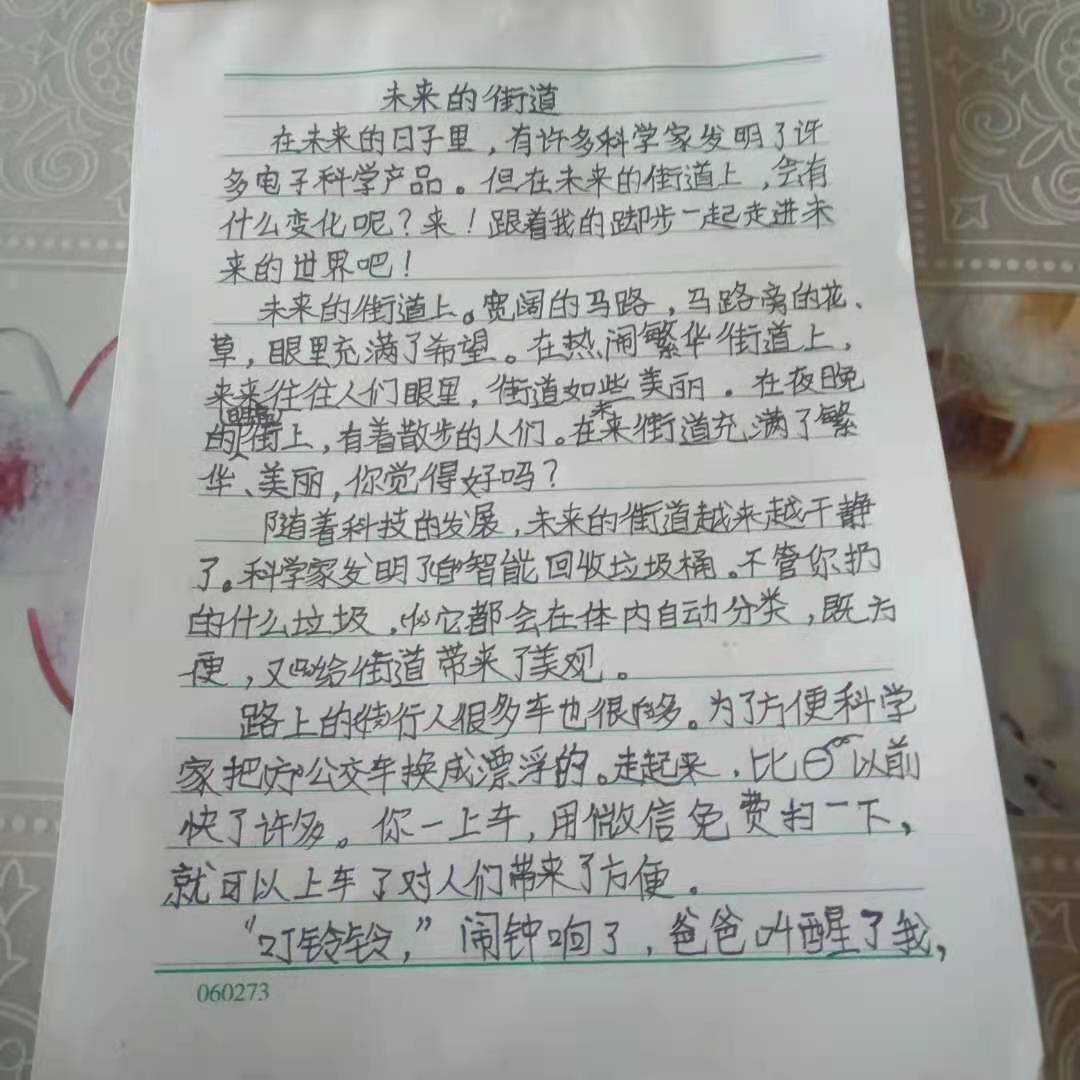 未来的街道
在未来的日子里，有许多科学家发明了许
多电子科学产品。但在未来的街道上，会有
什么变化呢？来！跟着我的脚步一起走进未
来的世界吧！
未来的街道上。宽阔的马路，马路旁的花、
草，眼里充满了希望。在热闹繁华街道上，
来来往往人们眼里，街道如些美丽。在夜晚
的街上，有着散步的人们。在未来街道充满了繁
华、美丽，你觉得好吗？
随着科技的发展，未来的街道越来越干静
了。科学家发明了智能回收垃圾桶。不管你扔
的什么垃圾，它都会在体内自动分类，既方
便，又给街道带来了美观。
路上的行人很多车也很多。为了方便科学
家把公交车换成漂浮的。走起来，比以前
快了许多。你一上车，用微信免费扫一下，
就可以上车了对人们带来了方便。
“叮铃铃，”闹钟响了，爸爸叫醒了我，
060273